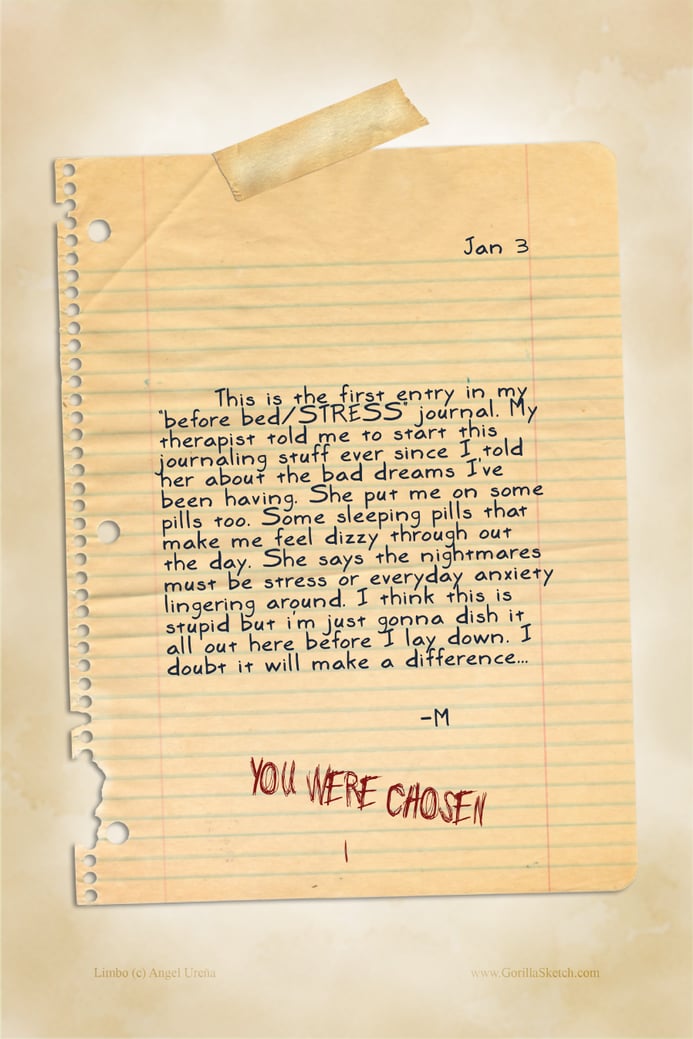 Jan 3
This is the first entry in my
"before bed/STRESS" journal. My
therapist told me to start this
journaling stuff ever since I told
her about the bad dreams I've
been having. She put me on some
pills too. Some sleeping pills that
make me feel dizzy through out
the day. She says the nightmares
must be stress or everyday anxiety
lingering around. I think this is
stupid but i'm just gonna dish it
all out here before I lay down. I
doubt it will make a difference...
-M
YOU WERE CHOSEN
1
Limbo (c) Angel Ureña
www.GorillaSketch.com